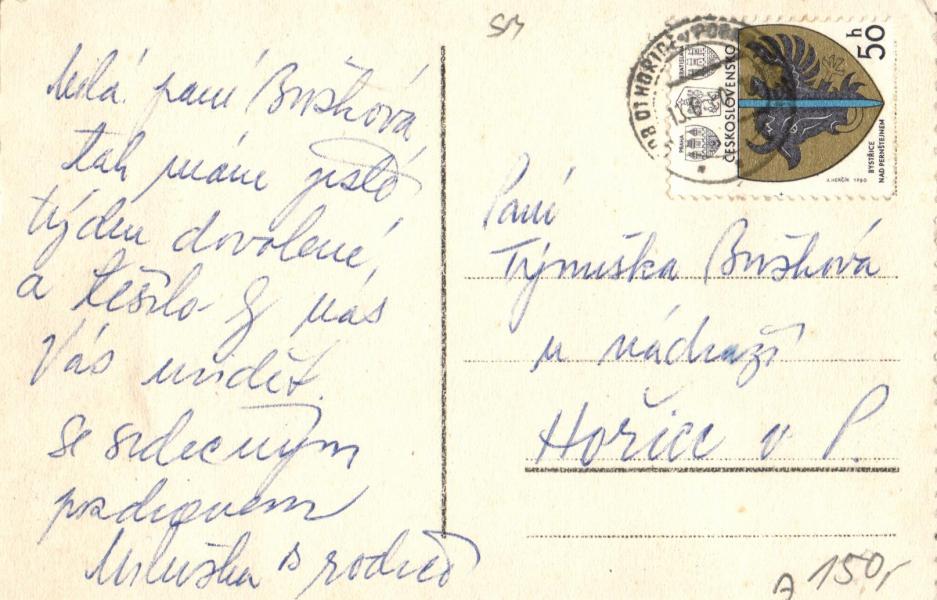 SM
Milá paní Buštková,
tak máme ještě
týden dovolené,
a těšilo by nás
Vás vidět.
Se srdečným
pozdravem
Miluška s rodičů
Paní
Týnuška Bušková
u nádraží
Hořice v P.
508 01 HOŘICE v POD
BRATISLAVA
PRAHA
ČESKOSLOVENSKO
50 h
BYSTŘICE
NAD PERNŠTEJNEM
J. HERČÍK 1980
150,-